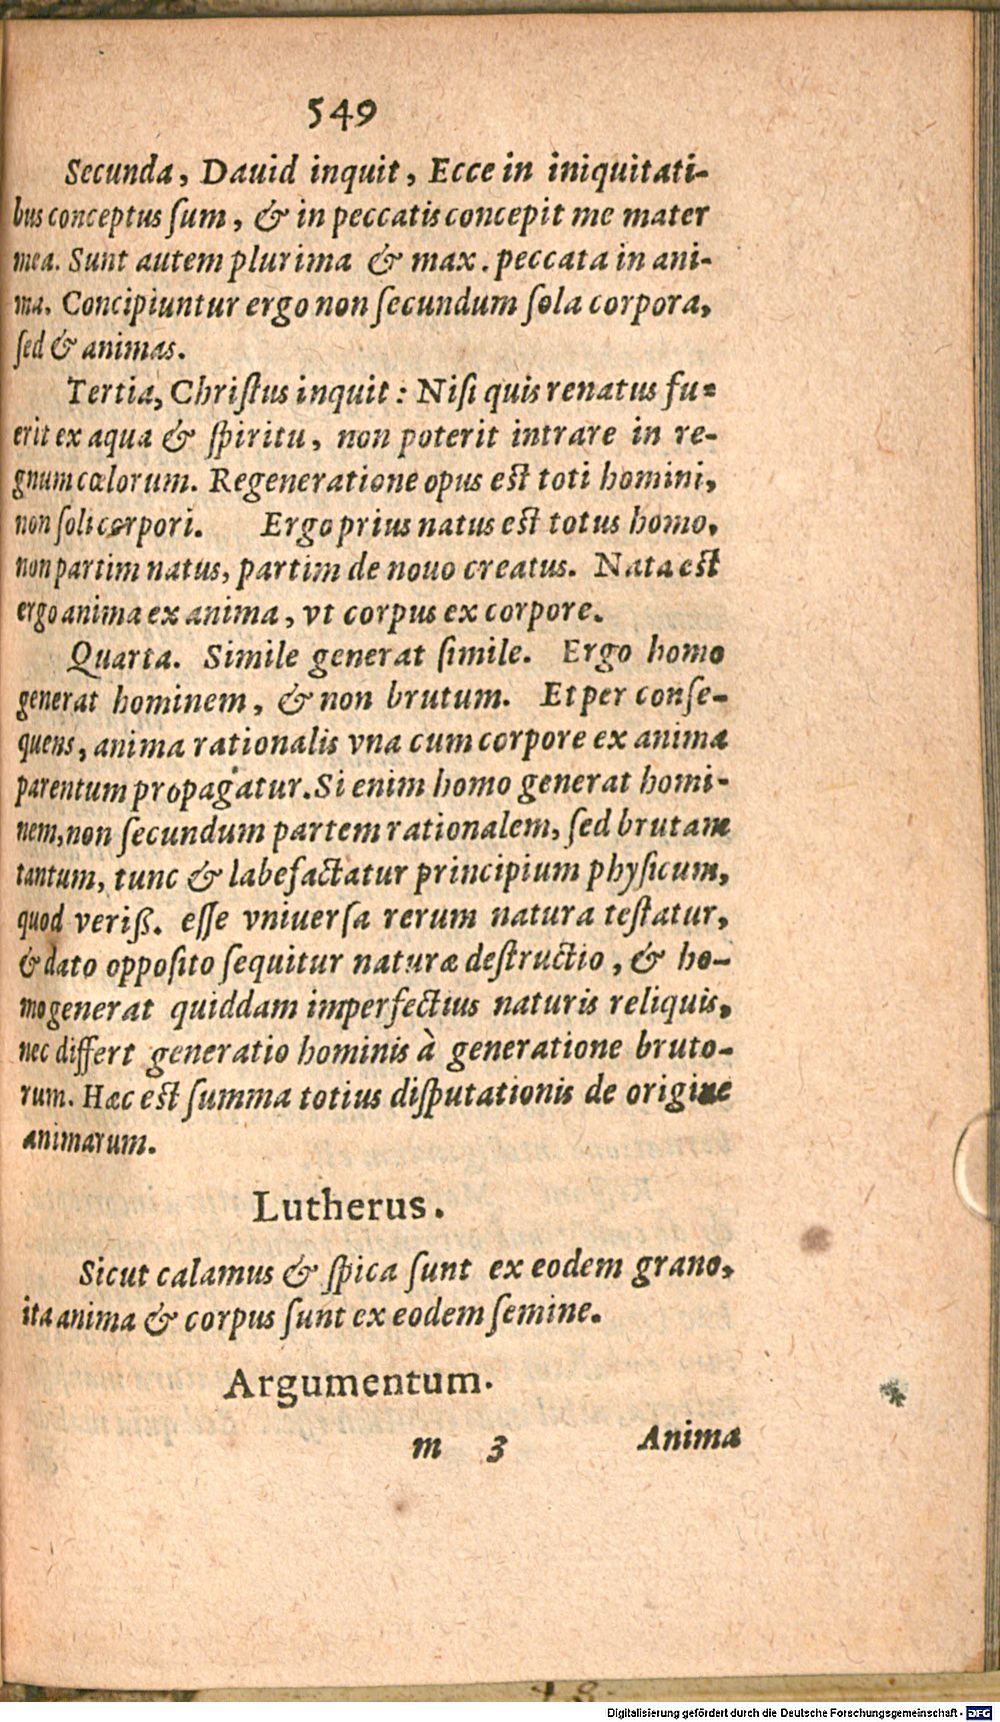 549
Secunda, Dauid inquit, Ecce in iniquitati-
bus conceptus ſum, & in peccatis concepit me mater
mea. Sunt autem plurima & max. peccata in ani-
ma. Concipiuntur ergo non ſecundum ſola corpora,
ſed & animas.
Tertia, Chriſtus inquit: Niſi quis renatus fu-
erit ex aqua & ſpiritu, non poterit intrare in re-
gnum cœlorum. Regeneratione opus eſt toti homini,
non ſoli corpori. Ergo prius natus eſt totus homo,
non partim natus, partim de nouo creatus. Nata eſt
ergo anima ex anima, vt corpus ex corpore.
Quarta. Simile generat ſimile. Ergo homo
generat hominem, & non brutum. Et per conſe-
quens, anima rationalis vna cum corpore ex anima
parentum propagatur. Si enim homo generat homi-
nem, non ſecundum partem rationalem, ſed brutam
tantum, tunc & labefactatur principium phyſicum,
quod veriß. eſſe vniuerſa rerum natura teſtatur,
& dato oppoſito ſequitur naturæ deſtructio, & ho-
mo generat quiddam imperfectius naturis reliquis,
nec differt generatio hominis à generatione bruto-
rum. Hæc eſt ſumma totius diſputationis de origine
animarum.
Lutherus.
Sicut calamus & ſpica ſunt ex eodem grano,
ita anima & corpus ſunt ex eodem ſemine.
Argumentum.
m 3 Anima
Digitalisierung gefördert durch die Deutsche Forschungsgemeinschaft - DFG